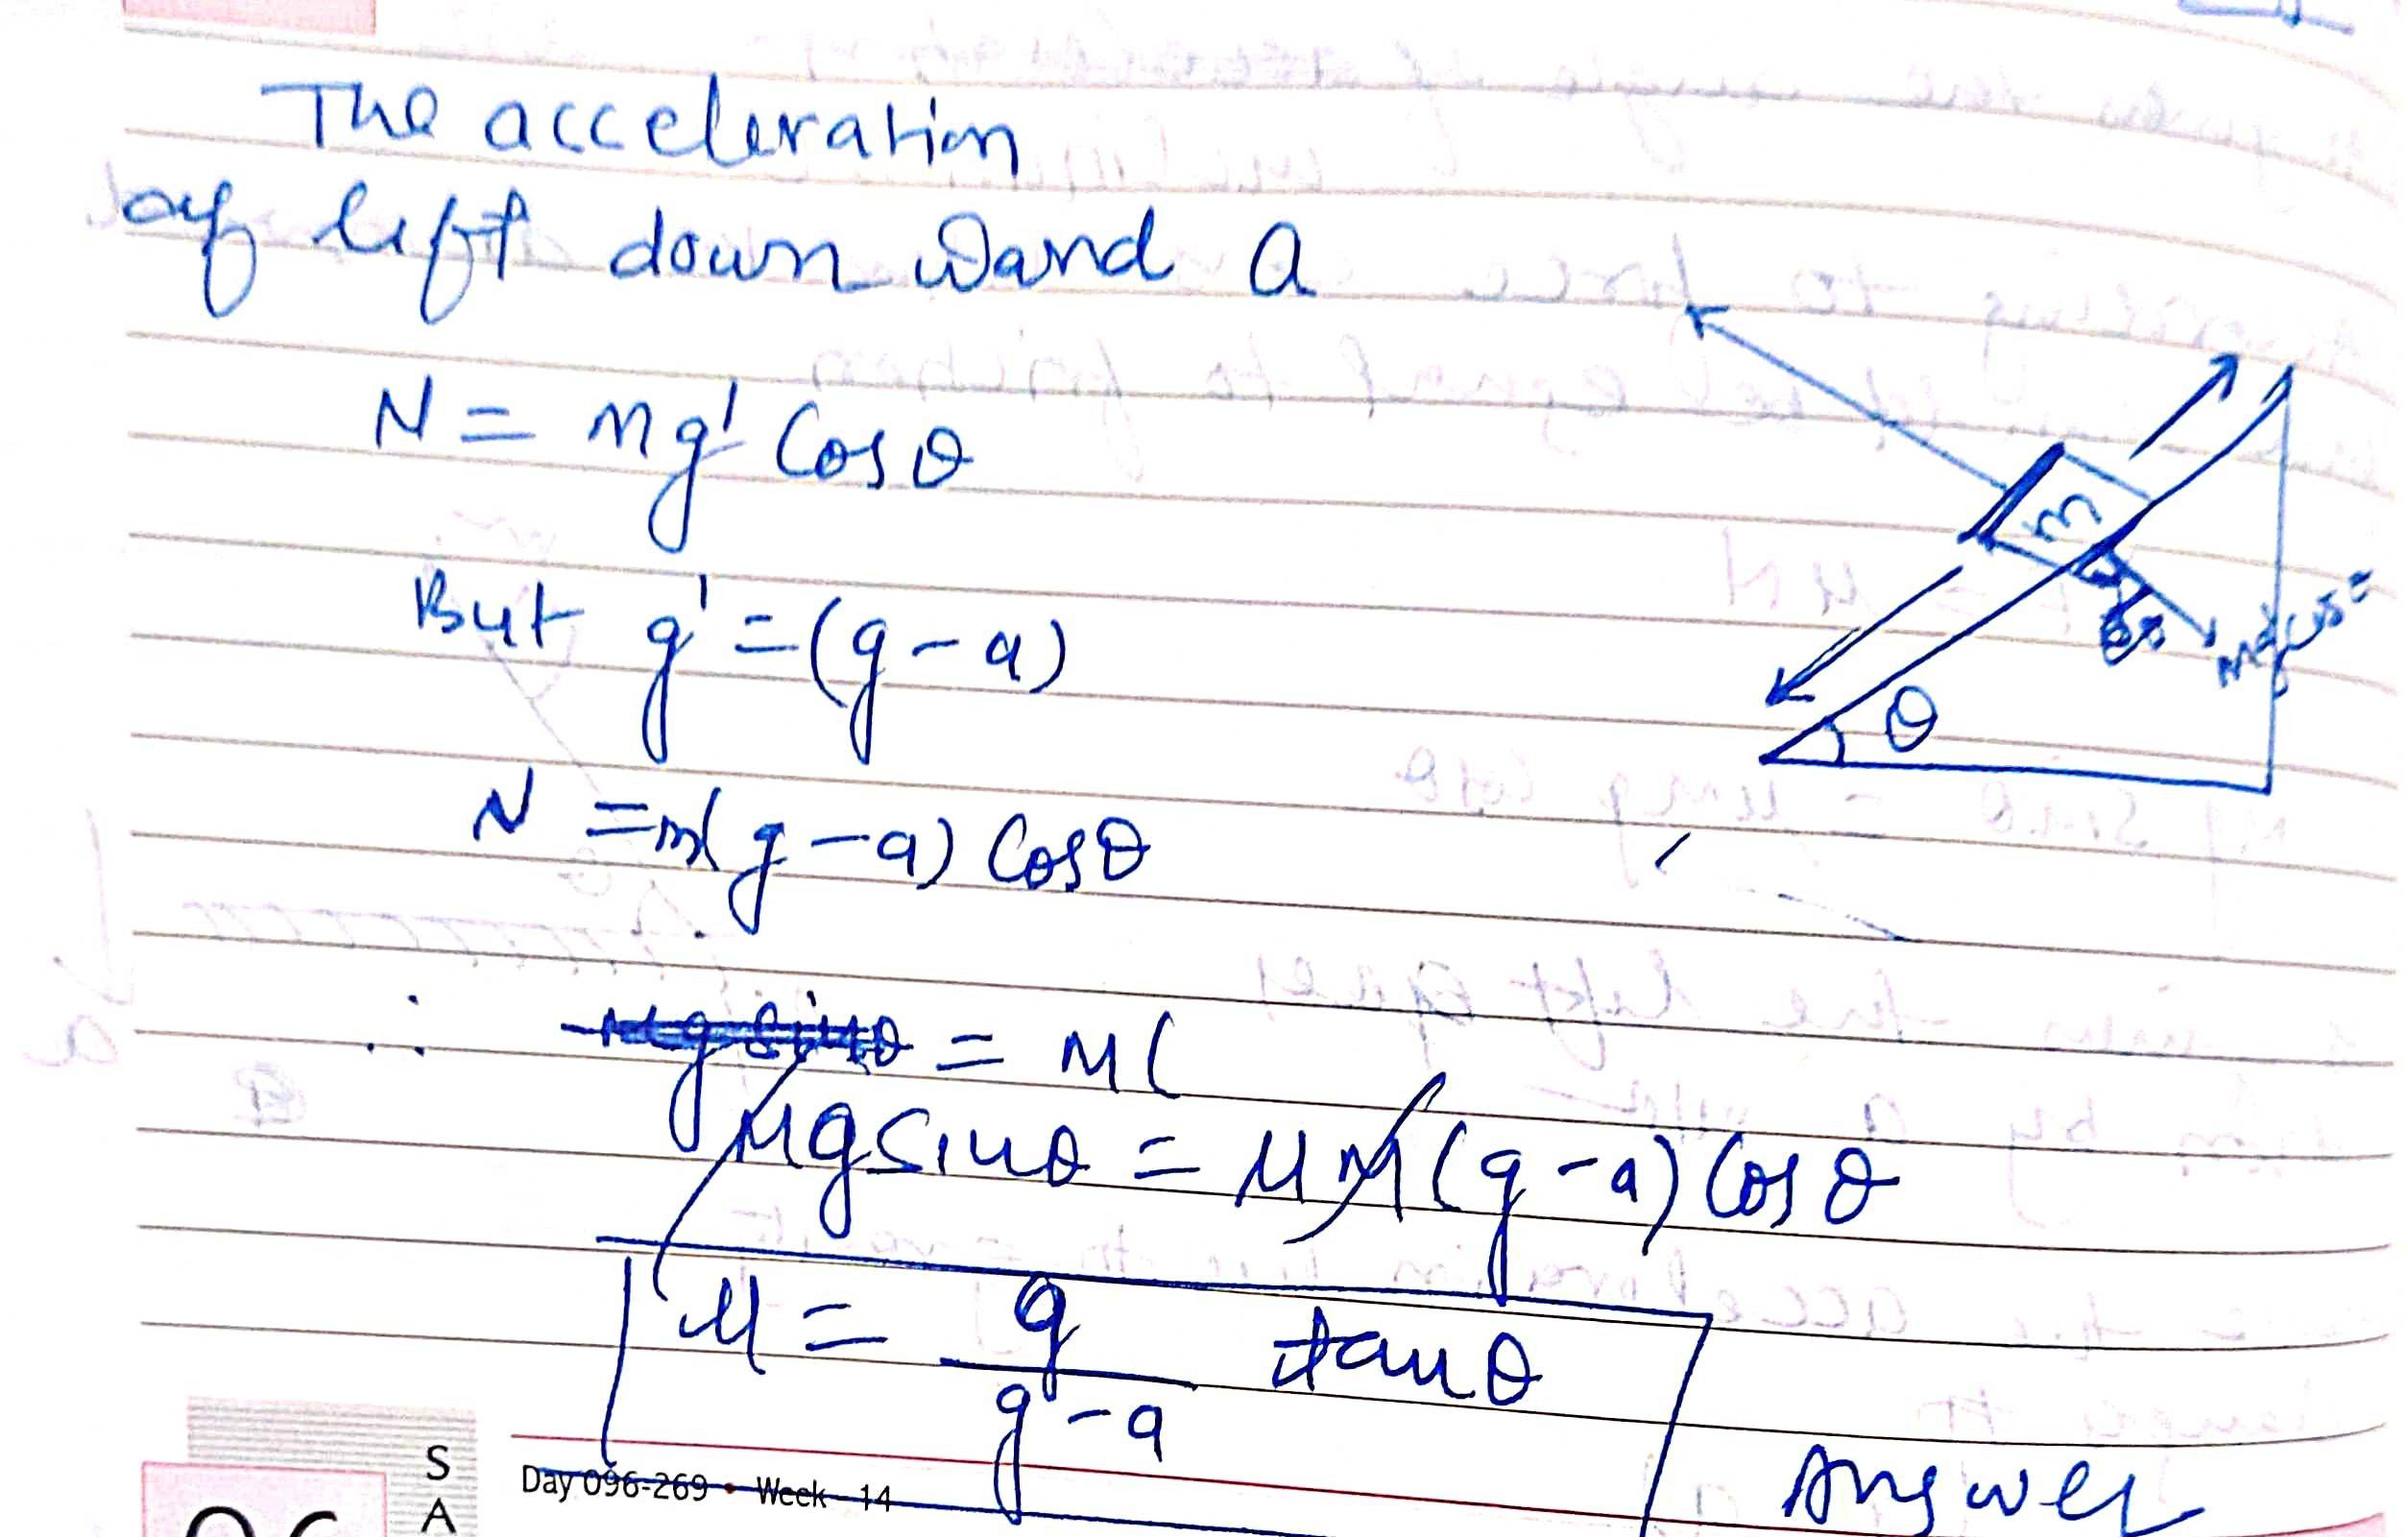 The acceleration
of lift down ward a
N = mg' Cosθ
But g' = (g - a)
N = m(g - a) Cosθ
∴ mg sinθ = M(
Mg sinθ = μM(g - a) Cosθ
μ = g/(g - a) tanθ
Answer
m
θ
S
A
Day 096-269 • Week - 14